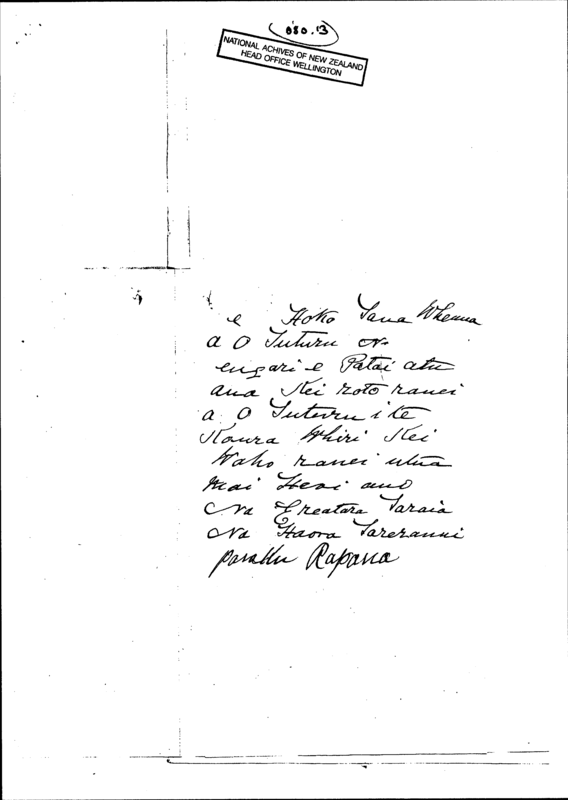 080.13
NATIONAL ACHIVES OF NEW ZEALAND
HEAD OFFICE WELLINGTON
e Hoko Tana Whenua
a O Tuturu
engari e Patai atu
ana Kei roto ranei
a O Tuturu i te
Koura Whiri Kei
Waho ranei utua
mai Heoi ano
Na Ereatara Taraia
Na Haora Tareranui